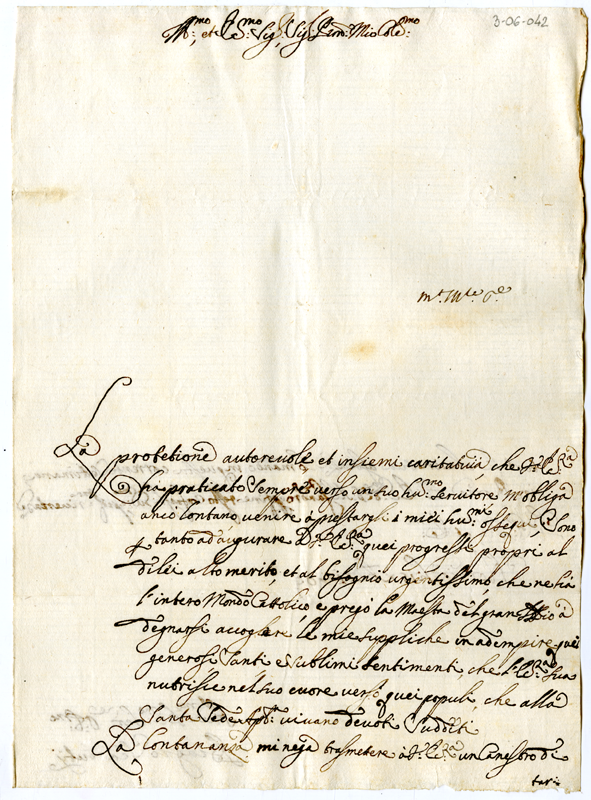 3-06-042
Ill.mo et Ecc.mo Sig.r Sig.r Pron: Mio Col.mo
La protetione autorevole et insiemi caritativa, che V.ra Ecc.za
ha praticato sempre verso un suo hu:mo servitore m'obliga
anco lontano venire à prestargli i miei hu:mi ossequi, e sono
tanto ad augurare D. V. Ecc.za quei progressi propri al
di lei alto merito, et al bisogno urgentissimo, che ne hà
l'intero Mondo Cattolico, e prego la Maestà del gran Iddio à
degnarsi accogliere le mie suppliche in adempire quei
generosi Santi e sublimi sentimenti che l'Ecc.za Sua
nutrisce nel suo cuore verso quei popoli, che alla
Santa Sede Ap: vivano devoti Sudditi
La Lontananza mi nega trasmetere à V. Ecc.za un Canestro di